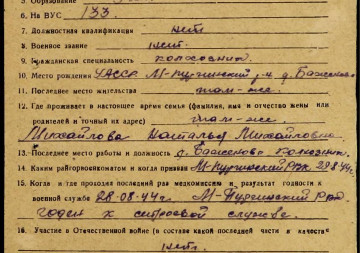 5. Образование
6. На ВУС 133
7. Должностная квалификация нет
8. Военное звание нет.
9. Гражданская специальность колхозник
10. Место рождения УАССР М-Пургинский р-н д. Баженово
11. Последнее место жительства там-же.
12. Где проживает в настоящее время семья (фамилия, имя и отчество жены или
родителей и точный их адрес) там-же.
Михайлова Наталья Михайловна
13. Последнее место работы и должность д. Баженово колхозник.
14. Каким райгорвоенкоматом и когда призван М-Пургинский РВК 29.8.44г.
15. Когда и где проходил последний раз медкомиссию и результат годности к
военной службе 28-08-44г. М-Пургинский РВК
годен к строевой службе.
16. Участие в Отечественной войне (в составе какой последней части и качестве
нет.